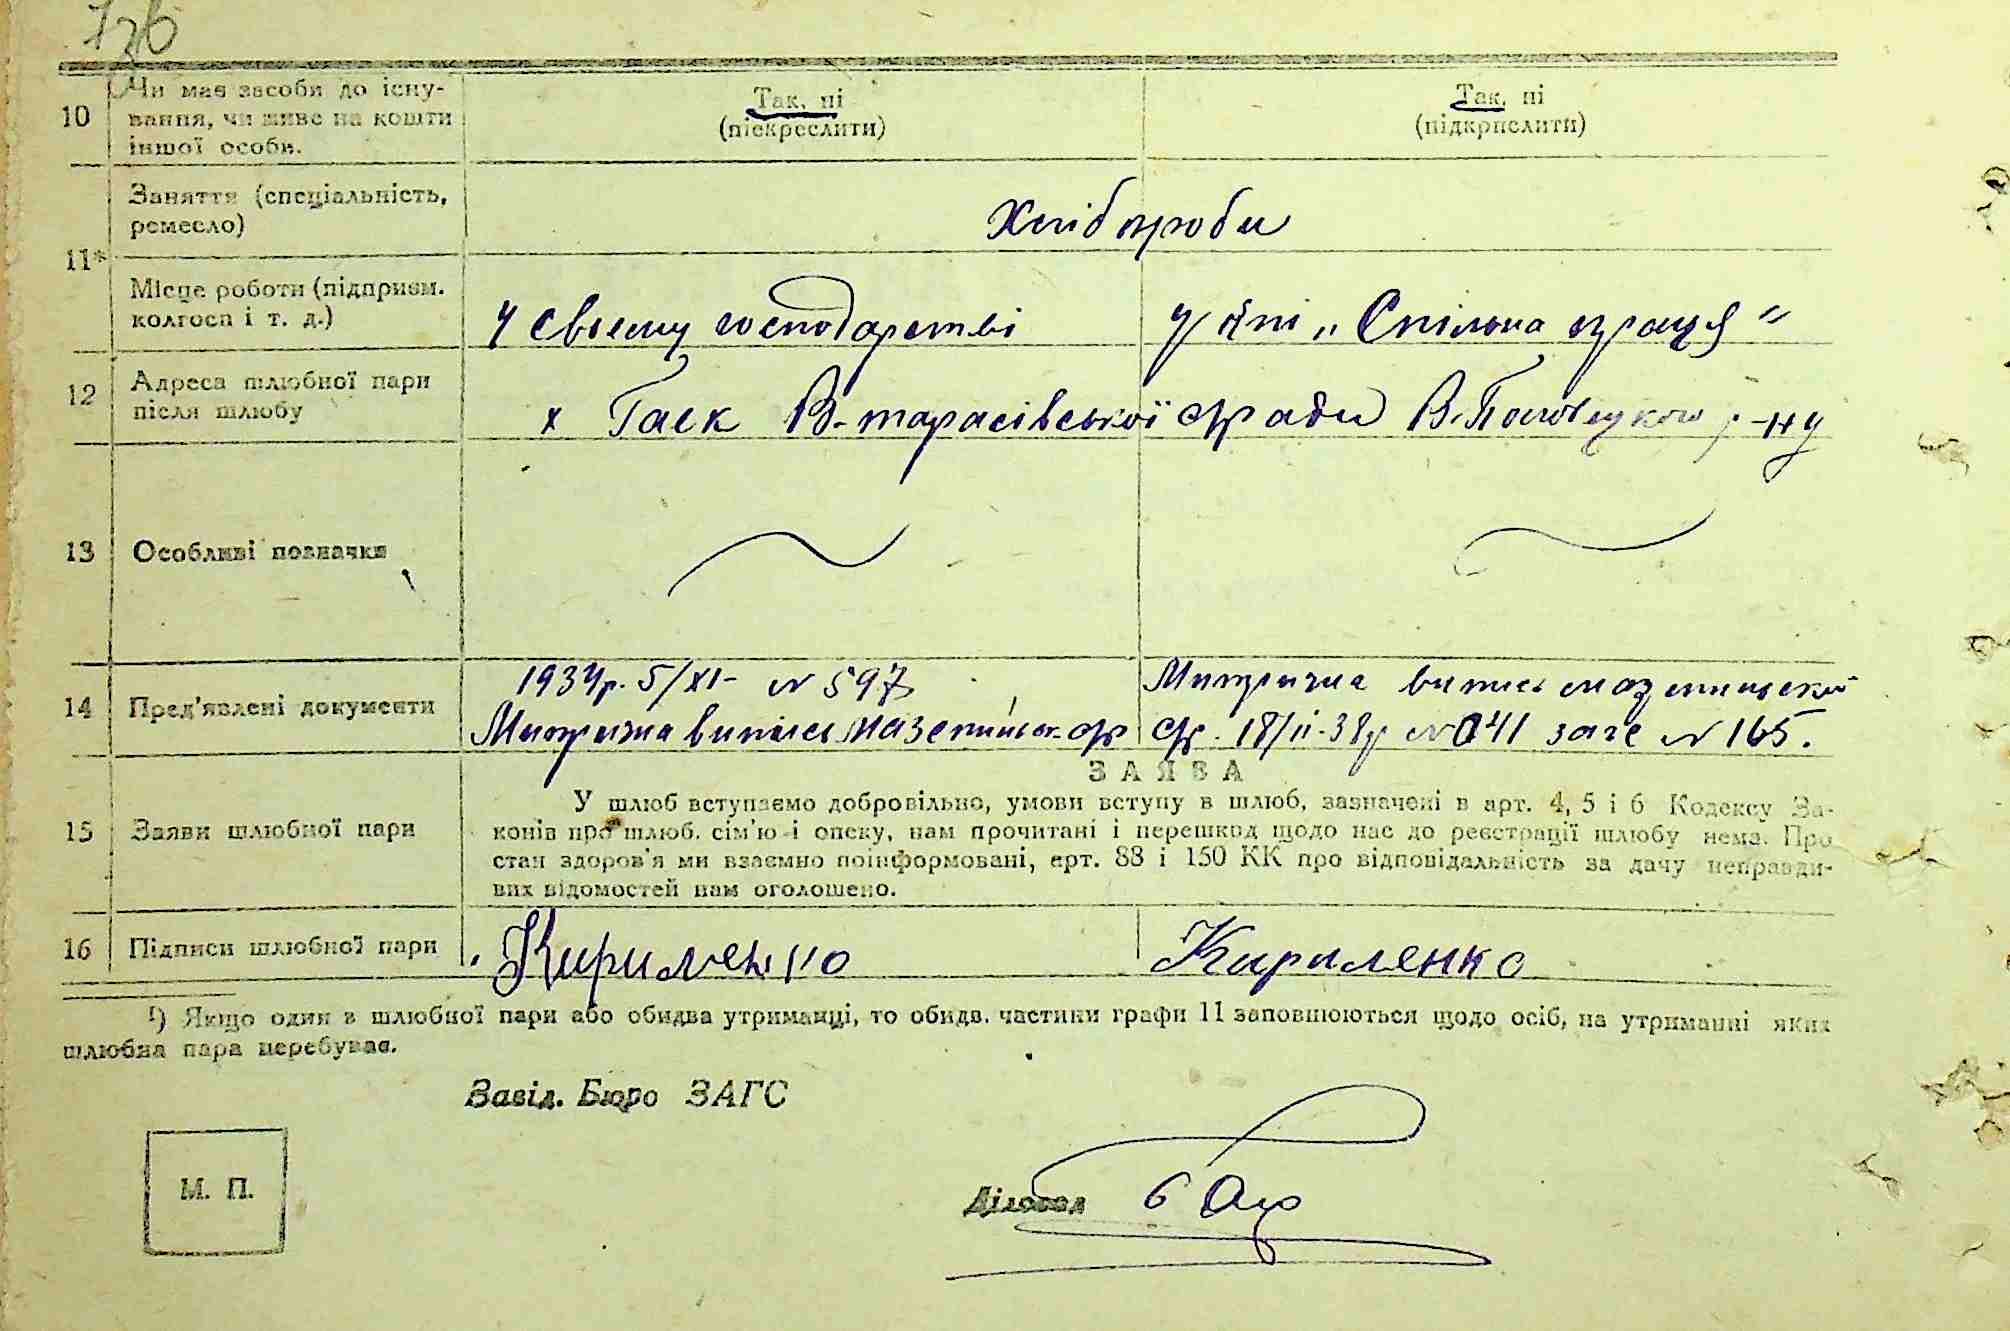 10 Чи має засоби до існу-
вання, чи живе на кошти
іншої особи.
Так, ні
(піекреслити)
Так, ні
(підкрпелити)
11* Заняття (спеціальність,
ремесло)
Хлібороби
Місце роботи (підприєм.
колгосп і т. д.)
у своему господарстві
у "Спільна праця"
12 Адреса шлюбної пари
після шлюбу
х Гаєк В-тарасівської с/ради В.Половецкого р-ну
13 Особливі позначки
14 Пред'явлені документи
1934р. 5/XI- N 597
Митрична випись мазепинськ. с/р
Митрична випись мазепинської
с/р. 18/II-38р N 041 заге N 165.
ЗАЯВА
15 Заяви шлюбної пари
У шлюб вступаємо добровільно, умови вступу в шлюб, зазначені в арт. 4, 5 і 6 Кодексу За-
конів про шлюб. сім'ю і опеку, нам прочитані і перешкод щодо нас до реєстрації шлюбу нема. Про
стан здоров'я ми взаємно поінформовані, ерт. 88 і 150 КК про відповідальність за дачу неправди-
вих відомостей нам оголошено.
16 Підписи шлюбної пари
Кириленко
Кириленко
¹) Якщо один в шлюбної пари або обидва утриманці, то обидв. частини графи 11 заповнюються щодо осіб, на утриманні яких
шлюбна пара перебуває.
Завід. Бюро ЗАГС
М. П.
Діловод